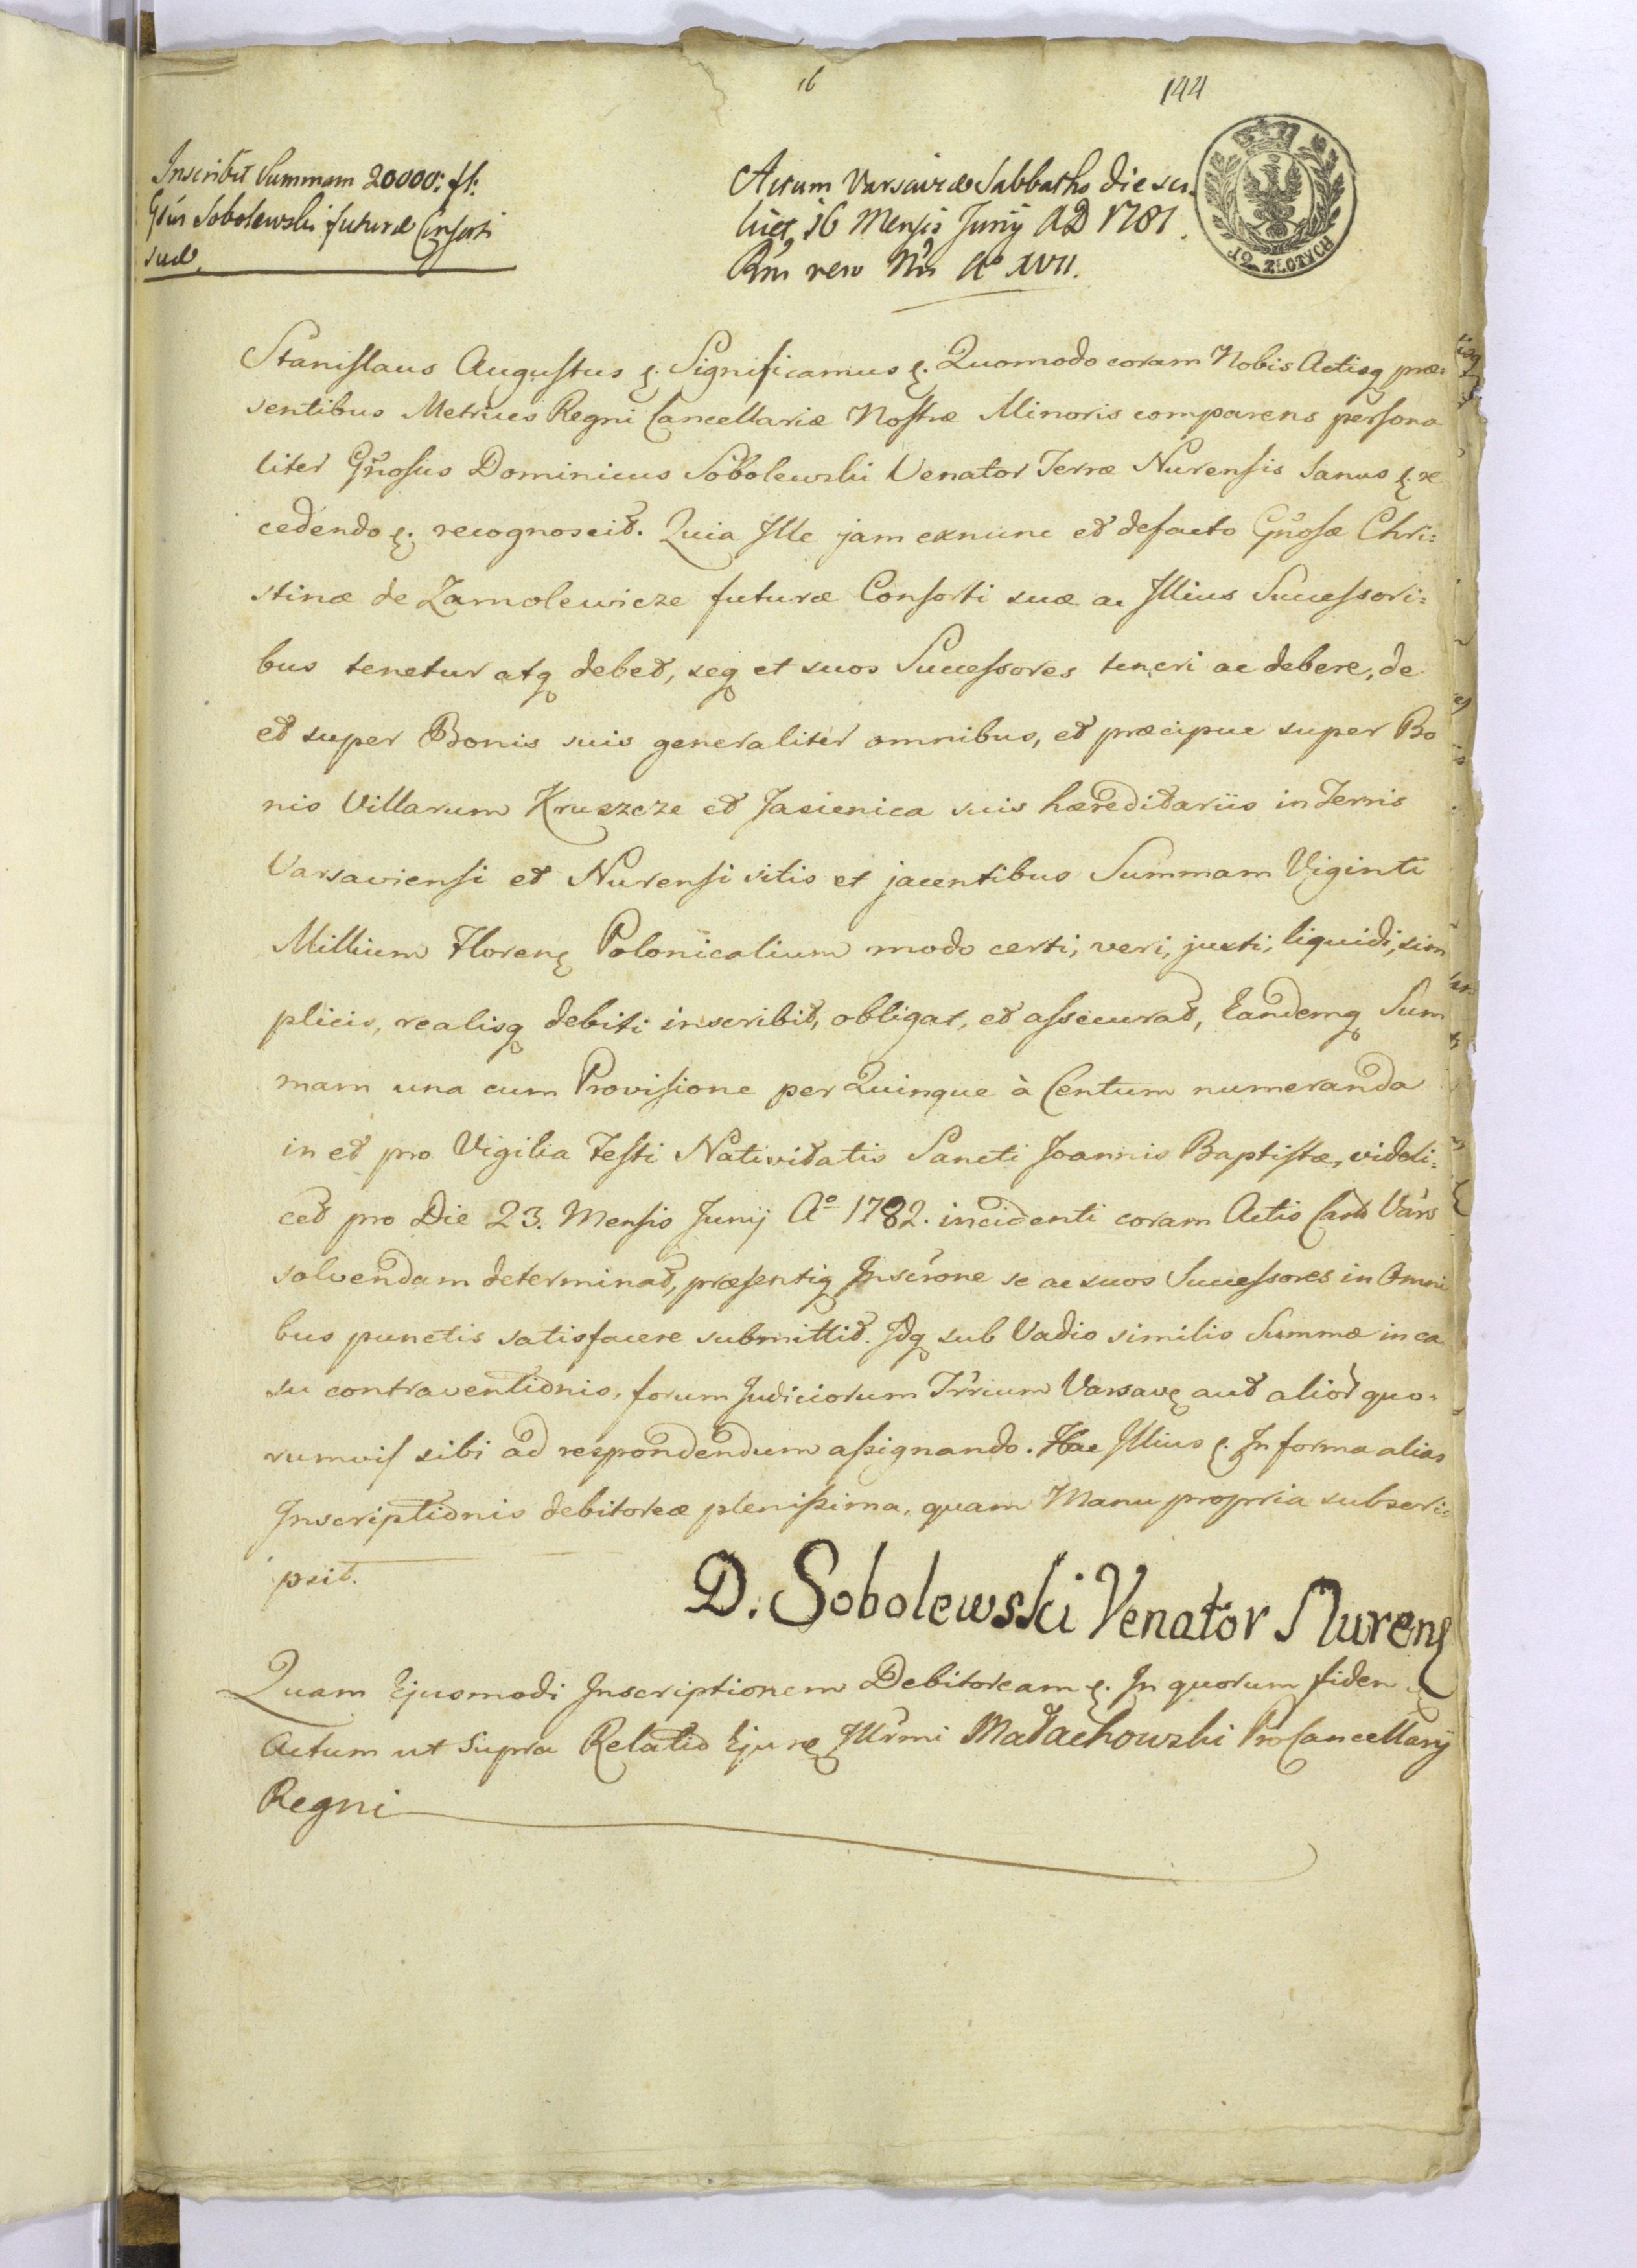 16
144
Inscribit Summam 20000: fl:
Gsūs Sobolewski futuræ Consorti
suæ.
Actum Varsaviæ Sabbatho die sci-
licet 16 Mensis Junij AD 1781.
Rni vero Nri Ao XVII.
12 ZŁOTYCH
Stanislaus Augustus &. Significamus &. Quomodo coram Nobis Actisq præ=
sentibus Metrices Regni Cancellariæ Nostræ Minoris comparens persona
liter Gnosus Dominicus Sobolewski Venator Terræ Nurensis Sanus &. re
cedendo &. recognoscit. Quia Ille jam exnunc et defacto Gnosæ Chri=
stinæ de Zamolewicze futuræ Consorti suæ ac Illius Successori=
bus tenetur atq debet, seq et suos Successores teneri ac debere, de
et super Bonis suis generaliter omnibus, et præcipue super Bo
nis Villarum Kruszcze et Jasienica suis hæreditariis in Terris
Varsaviensi et Nurensi sitis et jacentibus Summam Viginti
Millium Floren Polonicalium modo certi, veri, justi, liquidi, sim
plicis, realisq debiti inscribit, obligat, et assecurat, Eandemq Sum
mam una cum Provisione per Quinque à Centum numeranda
in et pro Vigilia Festi Nativitatis Sancti Joannis Baptistæ, videli=
cet pro Die 23. Mensis Junij Ao 1782. incidenti coram Actis Cast Vars
solvendam determinat, præsentiq Inscrone se ac suos Successores in Omni
bus punctis satisfacere submittit. Idq sub Vadio similis Summæ in ca
su contraventionis, forum Judiciorum Trrium Varsav aut alior quo=
rumvis sibi ad respondendum assignando. Hac Illius &. In forma alias
Inscriptionis debitoreæ plenissima, quam Manu propria subscri=
psit.
D. Sobolewski Venator Nuren
Quam Ejusmodi Inscriptionem Debitoream &. In quorum fidem &.
Actum ut Supra Relatio Ejusq Illrmi Małachowski ProCancellarij
Regni